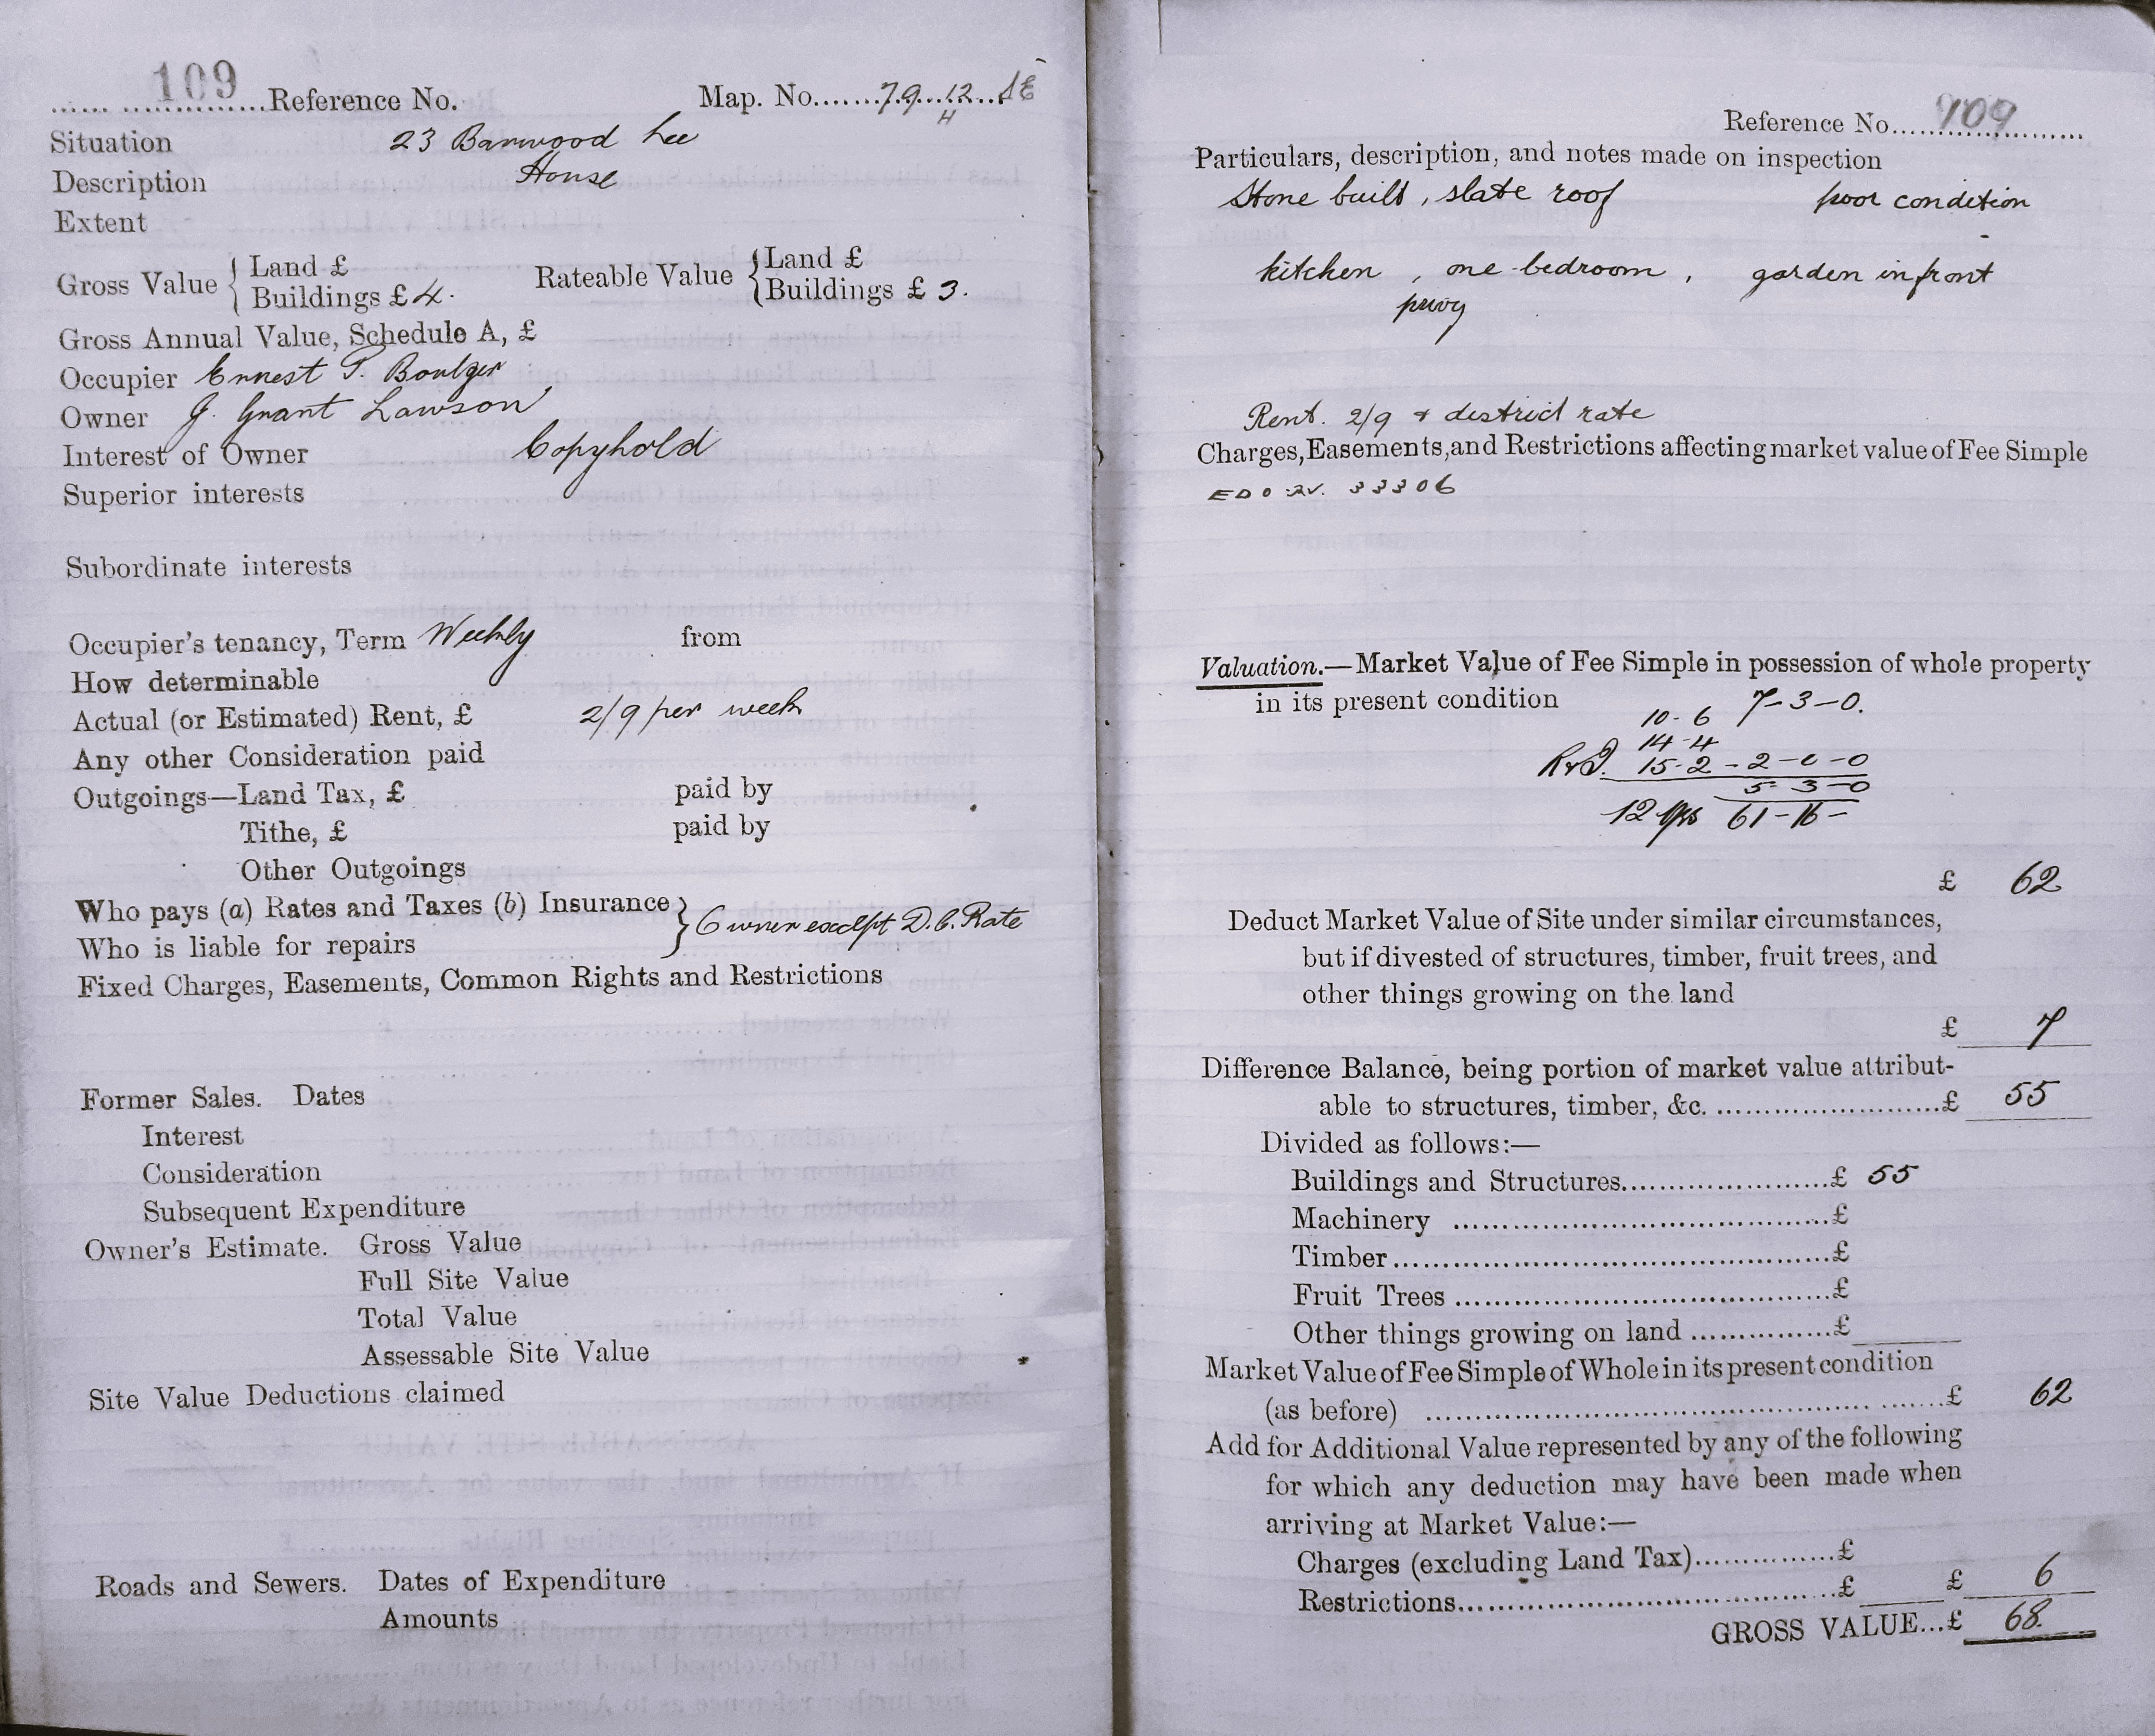 109 Reference No. Map. No. 79 12 SE
H
Situation 23 Barwood Lee
Description House
Extent
Gross Value { Land £ Rateable Value { Land £
Buildings £ 4. Buildings £ 3.
Gross Annual Value, Schedule A, £
Occupier Ernest T. Boulger
Owner J. Grant Lawson
Interest of Owner Copyhold
Superior interests
Subordinate interests
Occupier's tenancy, Term Weekly from
How determinable
Actual (or Estimated) Rent, £ 2/9 per week
Any other Consideration paid
Outgoings—Land Tax, £ paid by
Tithe, £ paid by
Other Outgoings
Who pays (a) Rates and Taxes (b) Insurance } Owner except D.C. Rate
Who is liable for repairs
Fixed Charges, Easements, Common Rights and Restrictions
Former Sales. Dates
Interest
Consideration
Subsequent Expenditure
Owner's Estimate. Gross Value
Full Site Value
Total Value
Assessable Site Value
Site Value Deductions claimed
Roads and Sewers. Dates of Expenditure
Amounts
Reference No. 109
Particulars, description, and notes made on inspection
Stone built, slate roof poor condition
kitchen, one bedroom, garden in front
privy
Rent. 2/9 & district rate
Charges, Easements, and Restrictions affecting market value of Fee Simple
33306
Valuation.—Market Value of Fee Simple in possession of whole property
in its present condition 7-3-0.
10-6
14-4
15-2 - 2-0-0
5-3-0
12 yrs 61-16-
£ 62
Deduct Market Value of Site under similar circumstances,
but if divested of structures, timber, fruit trees, and
other things growing on the land
£ 7
Difference Balance, being portion of market value attribut-
able to structures, timber, &c. £ 55
Divided as follows:—
Buildings and Structures £ 55
Machinery £
Timber £
Fruit Trees £
Other things growing on land £
Market Value of Fee Simple of Whole in its present condition
(as before) £ 62
Add for Additional Value represented by any of the following
for which any deduction may have been made when
arriving at Market Value:—
Charges (excluding Land Tax) £
Restrictions £ £ 6
GROSS VALUE...£ 68